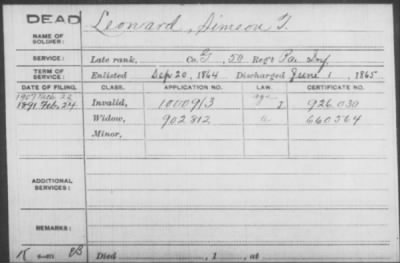 DEAD
NAME OF SOLDIER: Leonard, Simeon F.
SERVICE: Late rank, Co. G, 50 Reg't Pa Inf
TERM OF SERVICE: Enlisted Sep 20, 1864 Discharged June 1, 1865
DATE OF FILING. CLASS. APPLICATION NO. LAW. CERTIFICATE NO.
1907 Feb. 23
1891 Feb. 24 Invalid, 1000913 926030
Widow, 902812 660564
Minor,
ADDITIONAL SERVICES:
REMARKS:
Died , 1 , at